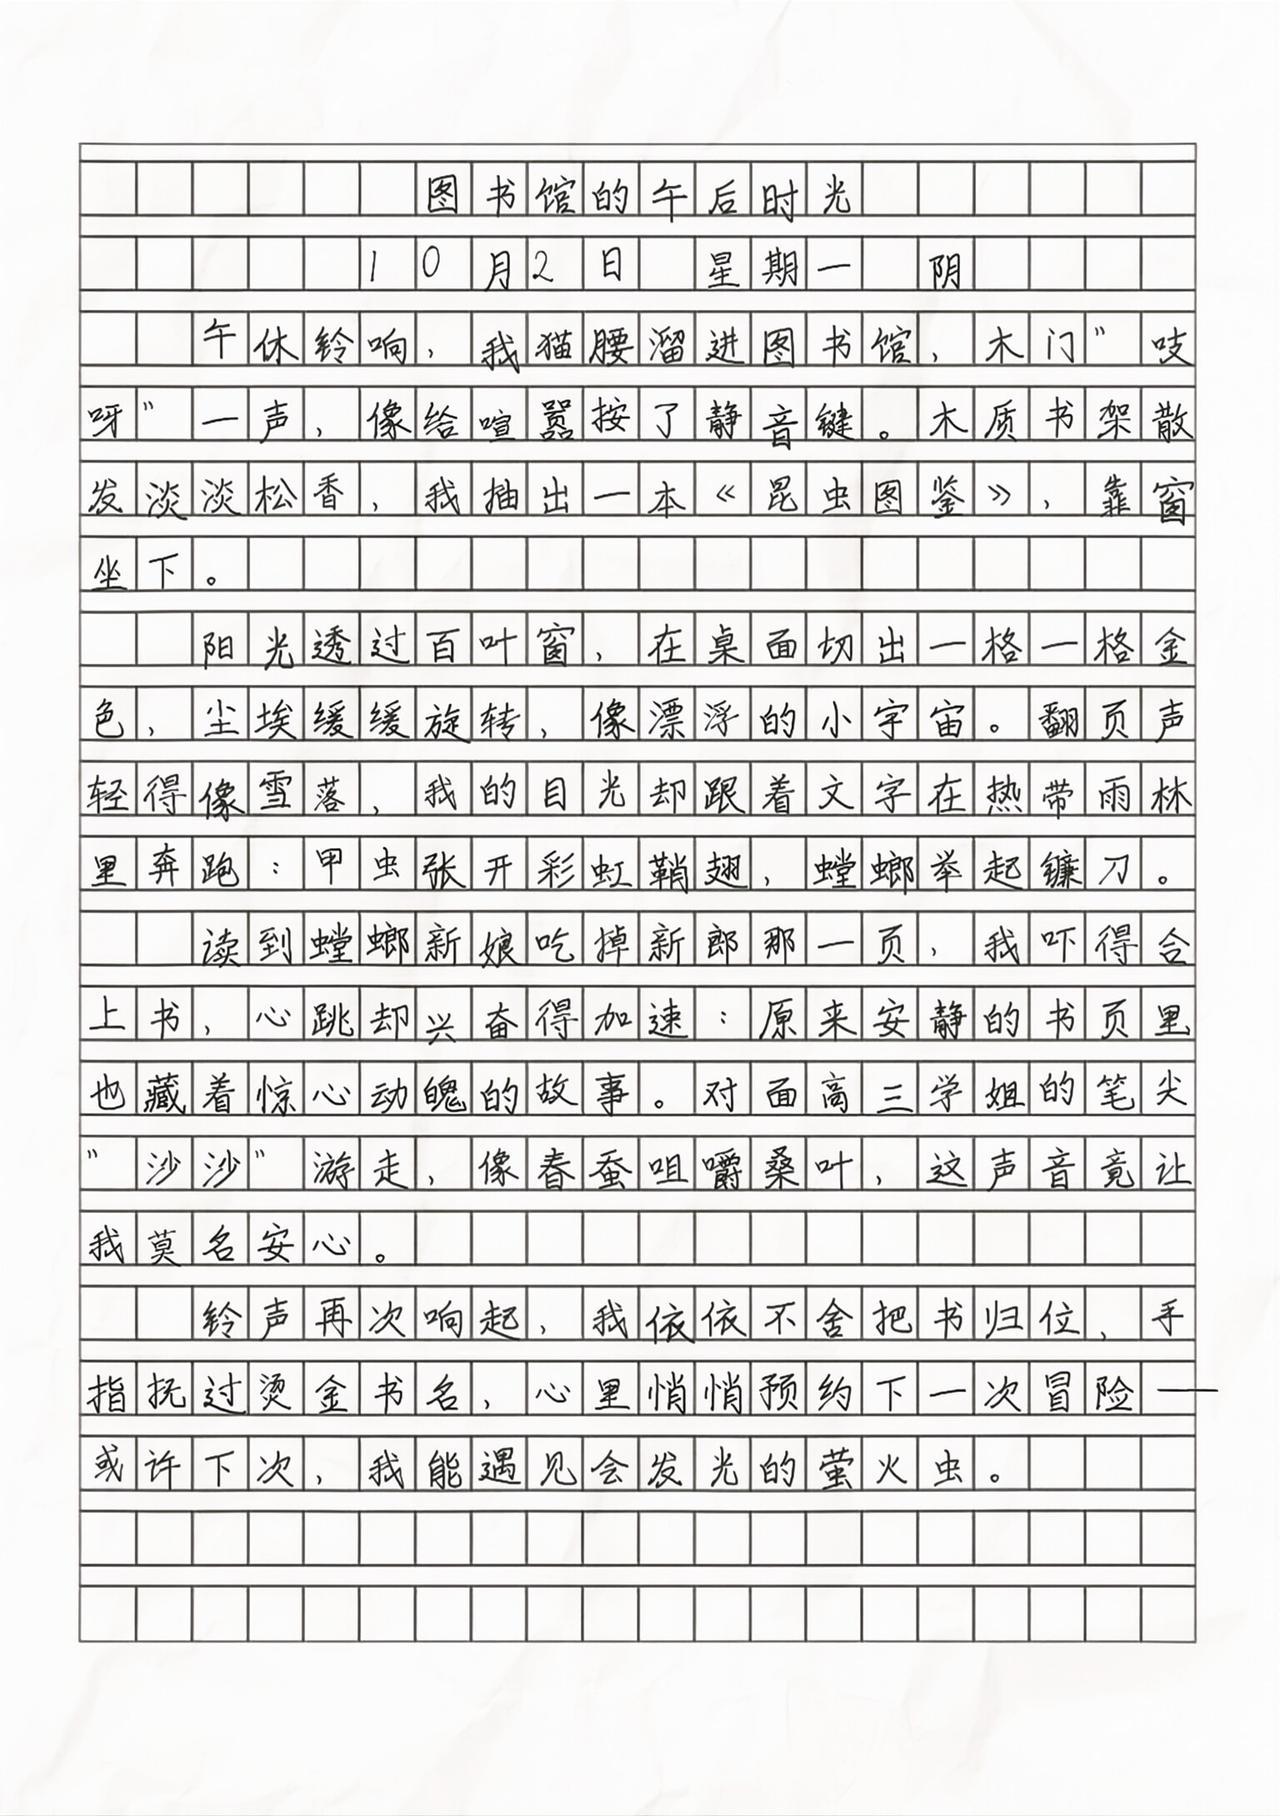 图书馆的午后时光
10月2日 星期一 阴
午休铃响，我猫腰溜进图书馆，木门”吱
呀”一声，像给喧嚣按了静音键。木质书架散
发淡淡松香，我抽出一本《昆虫图鉴》，靠窗
坐下。
阳光透过百叶窗，在桌面切出一格一格金
色，尘埃缓缓旋转，像漂浮的小宇宙。翻页声
轻得像雪落，我的目光却跟着文字在热带雨林
里奔跑：甲虫张开彩虹鞘翅，螳螂举起镰刀。
读到螳螂新娘吃掉新郎那一页，我吓得合
上书，心跳却兴奋得加速：原来安静的书页里
也藏着惊心动魄的故事。对面高三学姐的笔尖
”沙沙”游走，像春蚕咀嚼桑叶，这声音竟让
我莫名安心。
铃声再次响起，我依依不舍把书归位，手
指抚过烫金书名，心里悄悄预约下一次冒险—
或许下次，我能遇见会发光的萤火虫。